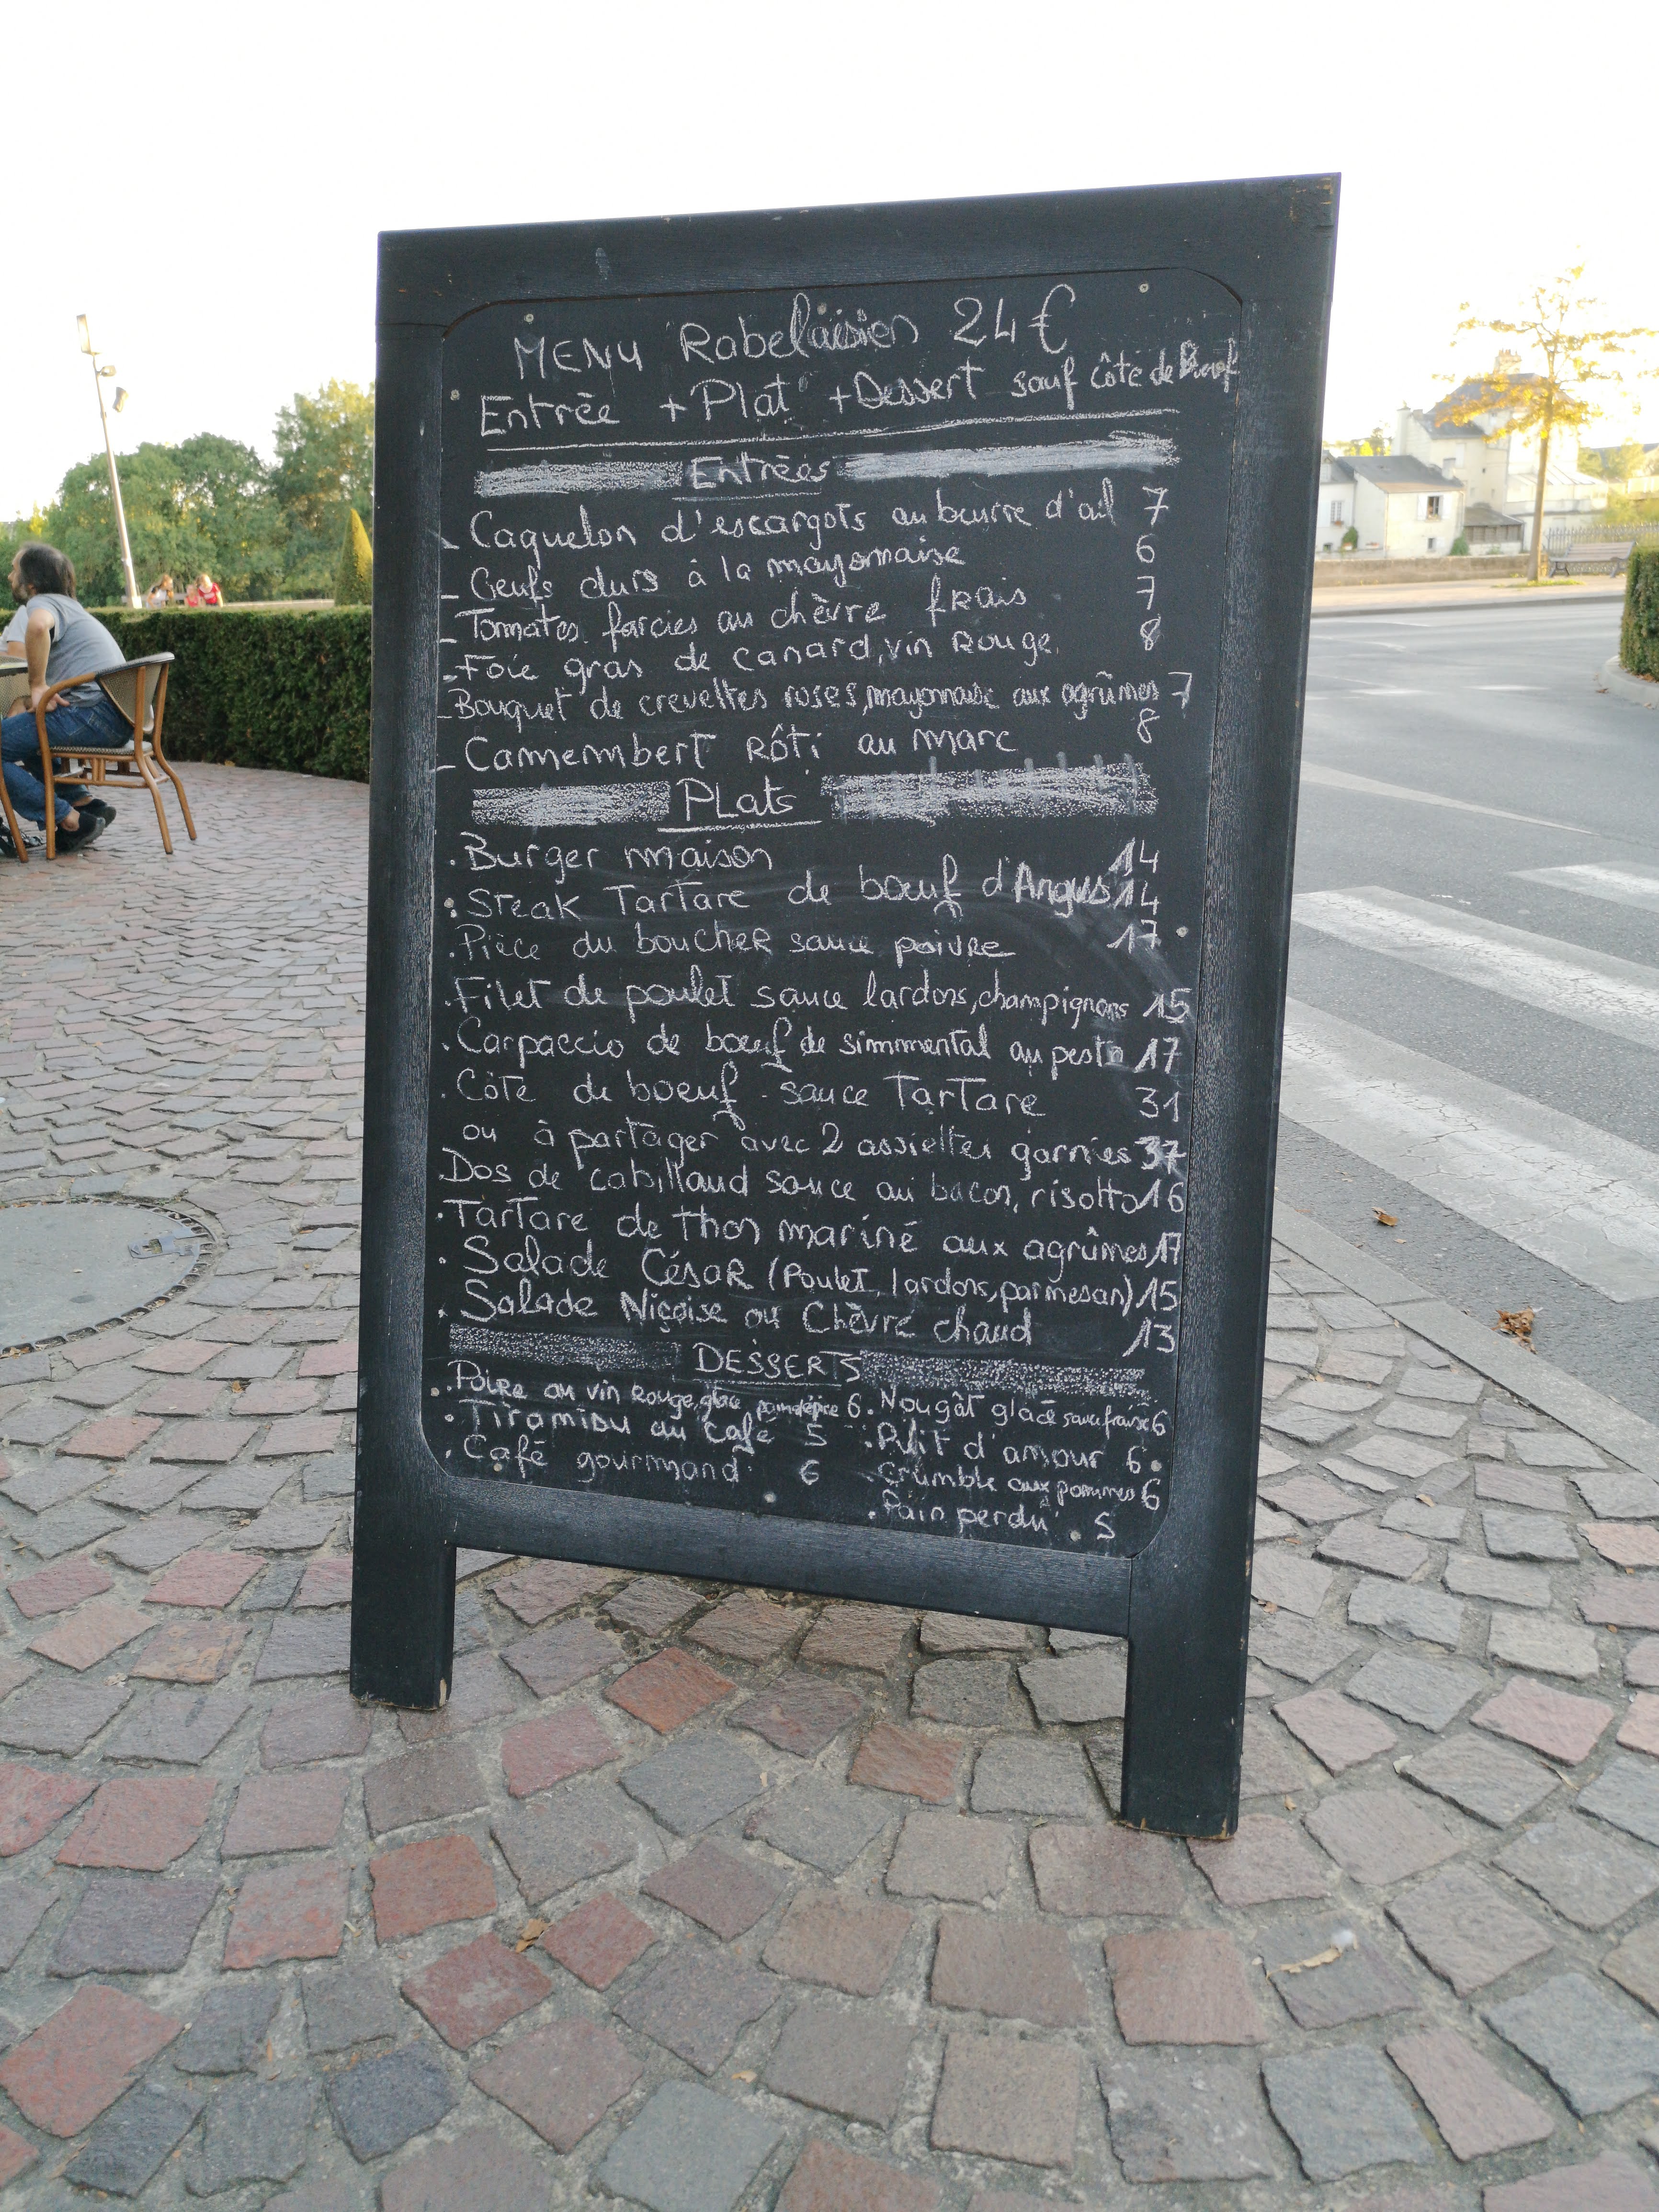 MENU Rabelaisien 24€
Entrée + Plat + Dessert sauf côte de Bœuf
Entrées
- Caquelon d'escargots au beurre d'ail 7
- Oeufs durs à la mayonnaise 6
- Tomates farcies au chèvre frais 7
- Foie gras de canard, vin Rouge 8
- Bouquet de crevettes roses, mayonnaise aux agrûmes 7
- Camembert Rôti au marc 8
PLats
. Burger maison 14
. Steak Tartare de bœuf d'Angus 14
. Pièce du boucher sauce poivre 17
. Filet de poulet sauce lardons, champignons 15
. Carpaccio de bœuf de simmental au pesto 17
. Côte de boeuf - sauce Tartare 31
ou à partager avec 2 assiettes garnies 37
. Dos de cabillaud sauce au bacon, risotto 16
. Tartare de thon mariné aux agrûmes 17
. Salade César (Poulet, lardons, parmesan) 15
. Salade Niçoise ou Chèvre chaud 13
DESSERTS
. Poire au vin Rouge, glace 6
. Tiramisu au café 5
. Café gourmand 6
. Nougât glacé sauce fraise 6
. Puit d'amour 6
. Crumble aux pommes 6
. Pain perdu 5